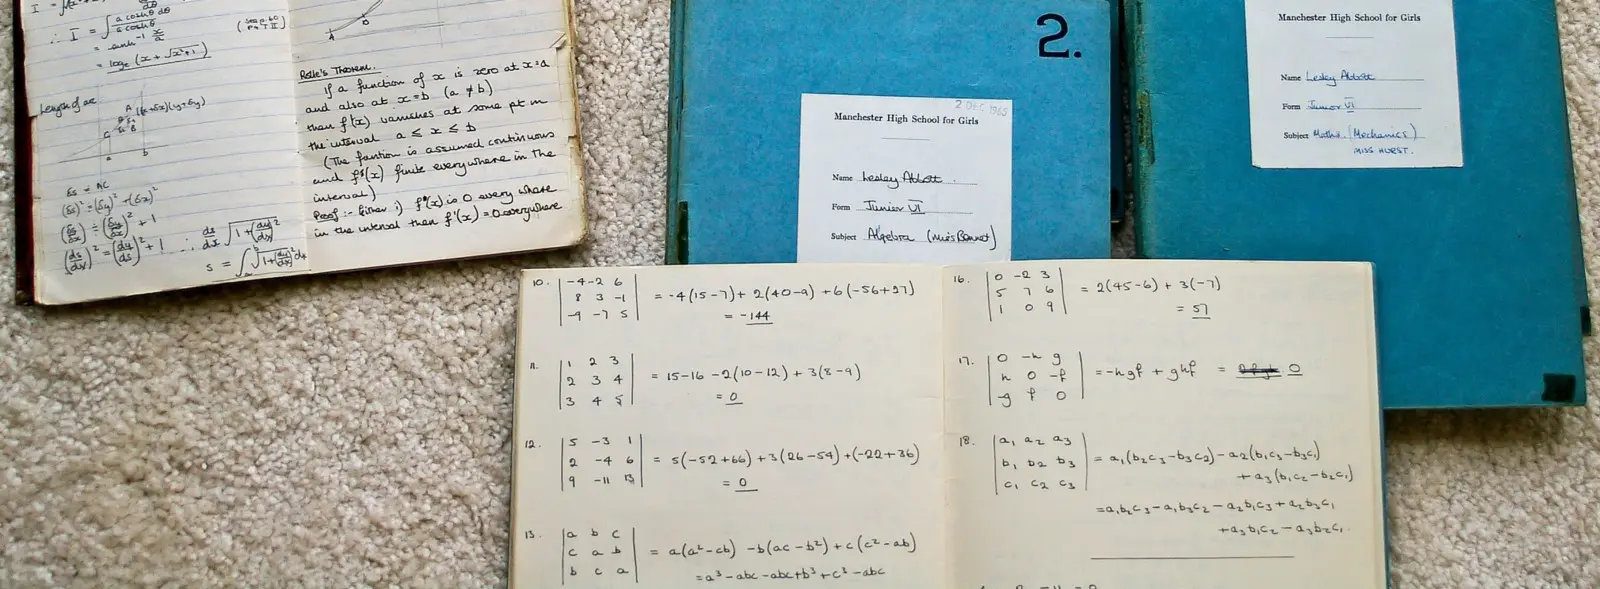 ∴ I = ∫ a coshθ dθ / a coshθ
= sinh⁻¹ x/a
= logₑ (x + √x²+1)
Length of arc
A
(x+δx)(y+δy)
C
B
a b
δs ≃ AC
(δs)² ≃ (δy)² + (δx)²
(δs/δx)² ≃ (δy/δx)² + 1
(ds/dx)² = (dy/dx)² + 1 ∴ ds/dx √1+(dy/dx)²
s = ∫ₐᵇ √1+(dy/dx)² dx
A
Rolle's Theorem.
If a function of x is zero at x=a
and also at x=b (a ≠ b)
then f'(x) vanishes at some pt in
the interval a ≤ x ≤ b
(The function is assumed continuous
and f'(x) finite everywhere in the
interval)
Proof :- Either i) f(x) is 0 every where
in the interval then f'(x) = 0 everywhere
2.
2 DEC 1965
Manchester High School for Girls
Name Lesley Abbott
Form Junior VI
Subject Algebra (Miss Bonnet)
Manchester High School for Girls
Name Lesley Abbott
Form Junior VI
Subject Maths. (Mechanics)
MISS HURST.
10. | -4 -2 6 |
| 8 3 -1 | = -4(15-7) + 2(40-9) + 6(-56+27)
| -9 -7 5 | = -144
11. | 1 2 3 |
| 2 3 4 | = 15-16 -2(10-12) + 3(8-9)
| 3 4 5 | = 0
12. | 5 -3 1 |
| 2 -4 6 | = 5(-52+66) + 3(26-54) + (-22+36)
| 9 -11 13 | = 0
13. | a b c |
| c a b | = a(a²-cb) -b(ac-b²) + c(c²-ab)
| b c a | = a³-abc-abc+b³+c³-abc
16. | 0 -2 3 |
| 5 7 6 | = 2(45-6) + 3(-7)
| 1 0 9 | = 57
17. | 0 -h g |
| h 0 -f | = -hgf + ghf = 0
| -g f 0 |
18. | a₁ a₂ a₃ |
| b₁ b₂ b₃ | = a₁(b₂c₃-b₃c₂) - a₂(b₁c₃-b₃c₁)
| c₁ c₂ c₃ | + a₃(b₁c₂-b₂c₁)
= a₁b₂c₃ - a₁b₃c₂ - a₂b₁c₃ + a₂b₃c₁
+ a₃b₁c₂ - a₃b₂c₁.